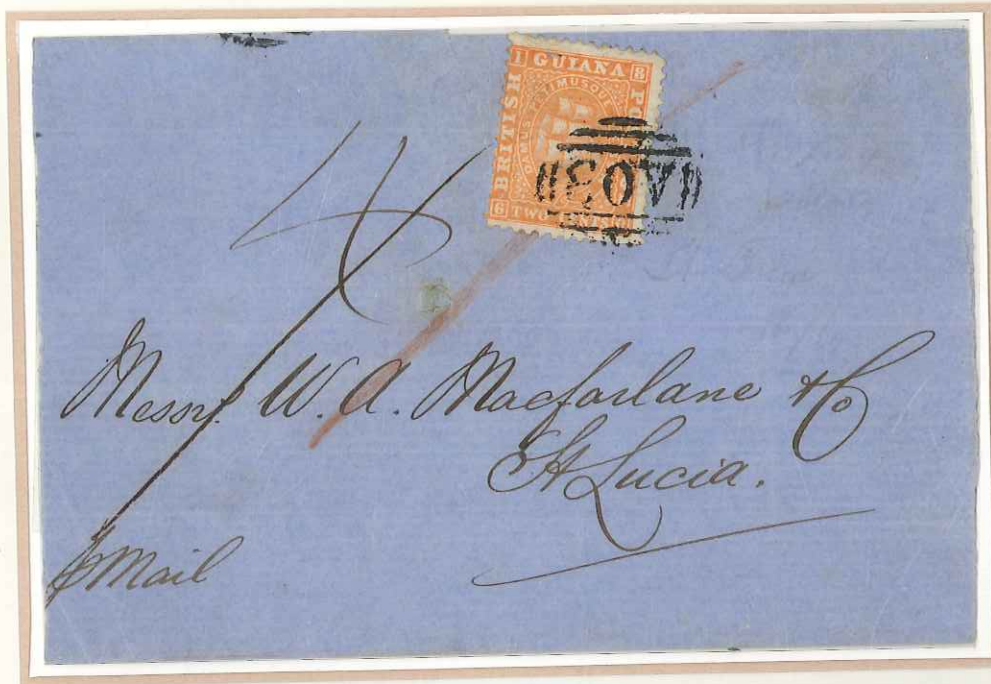 1 GUIANA 8
BRITISH
DAMUS PETIMUSQUE
6 TWO CENTS
A03
4
Messrs. W. A. Macfarlane & Co
St Lucia.
p Mail